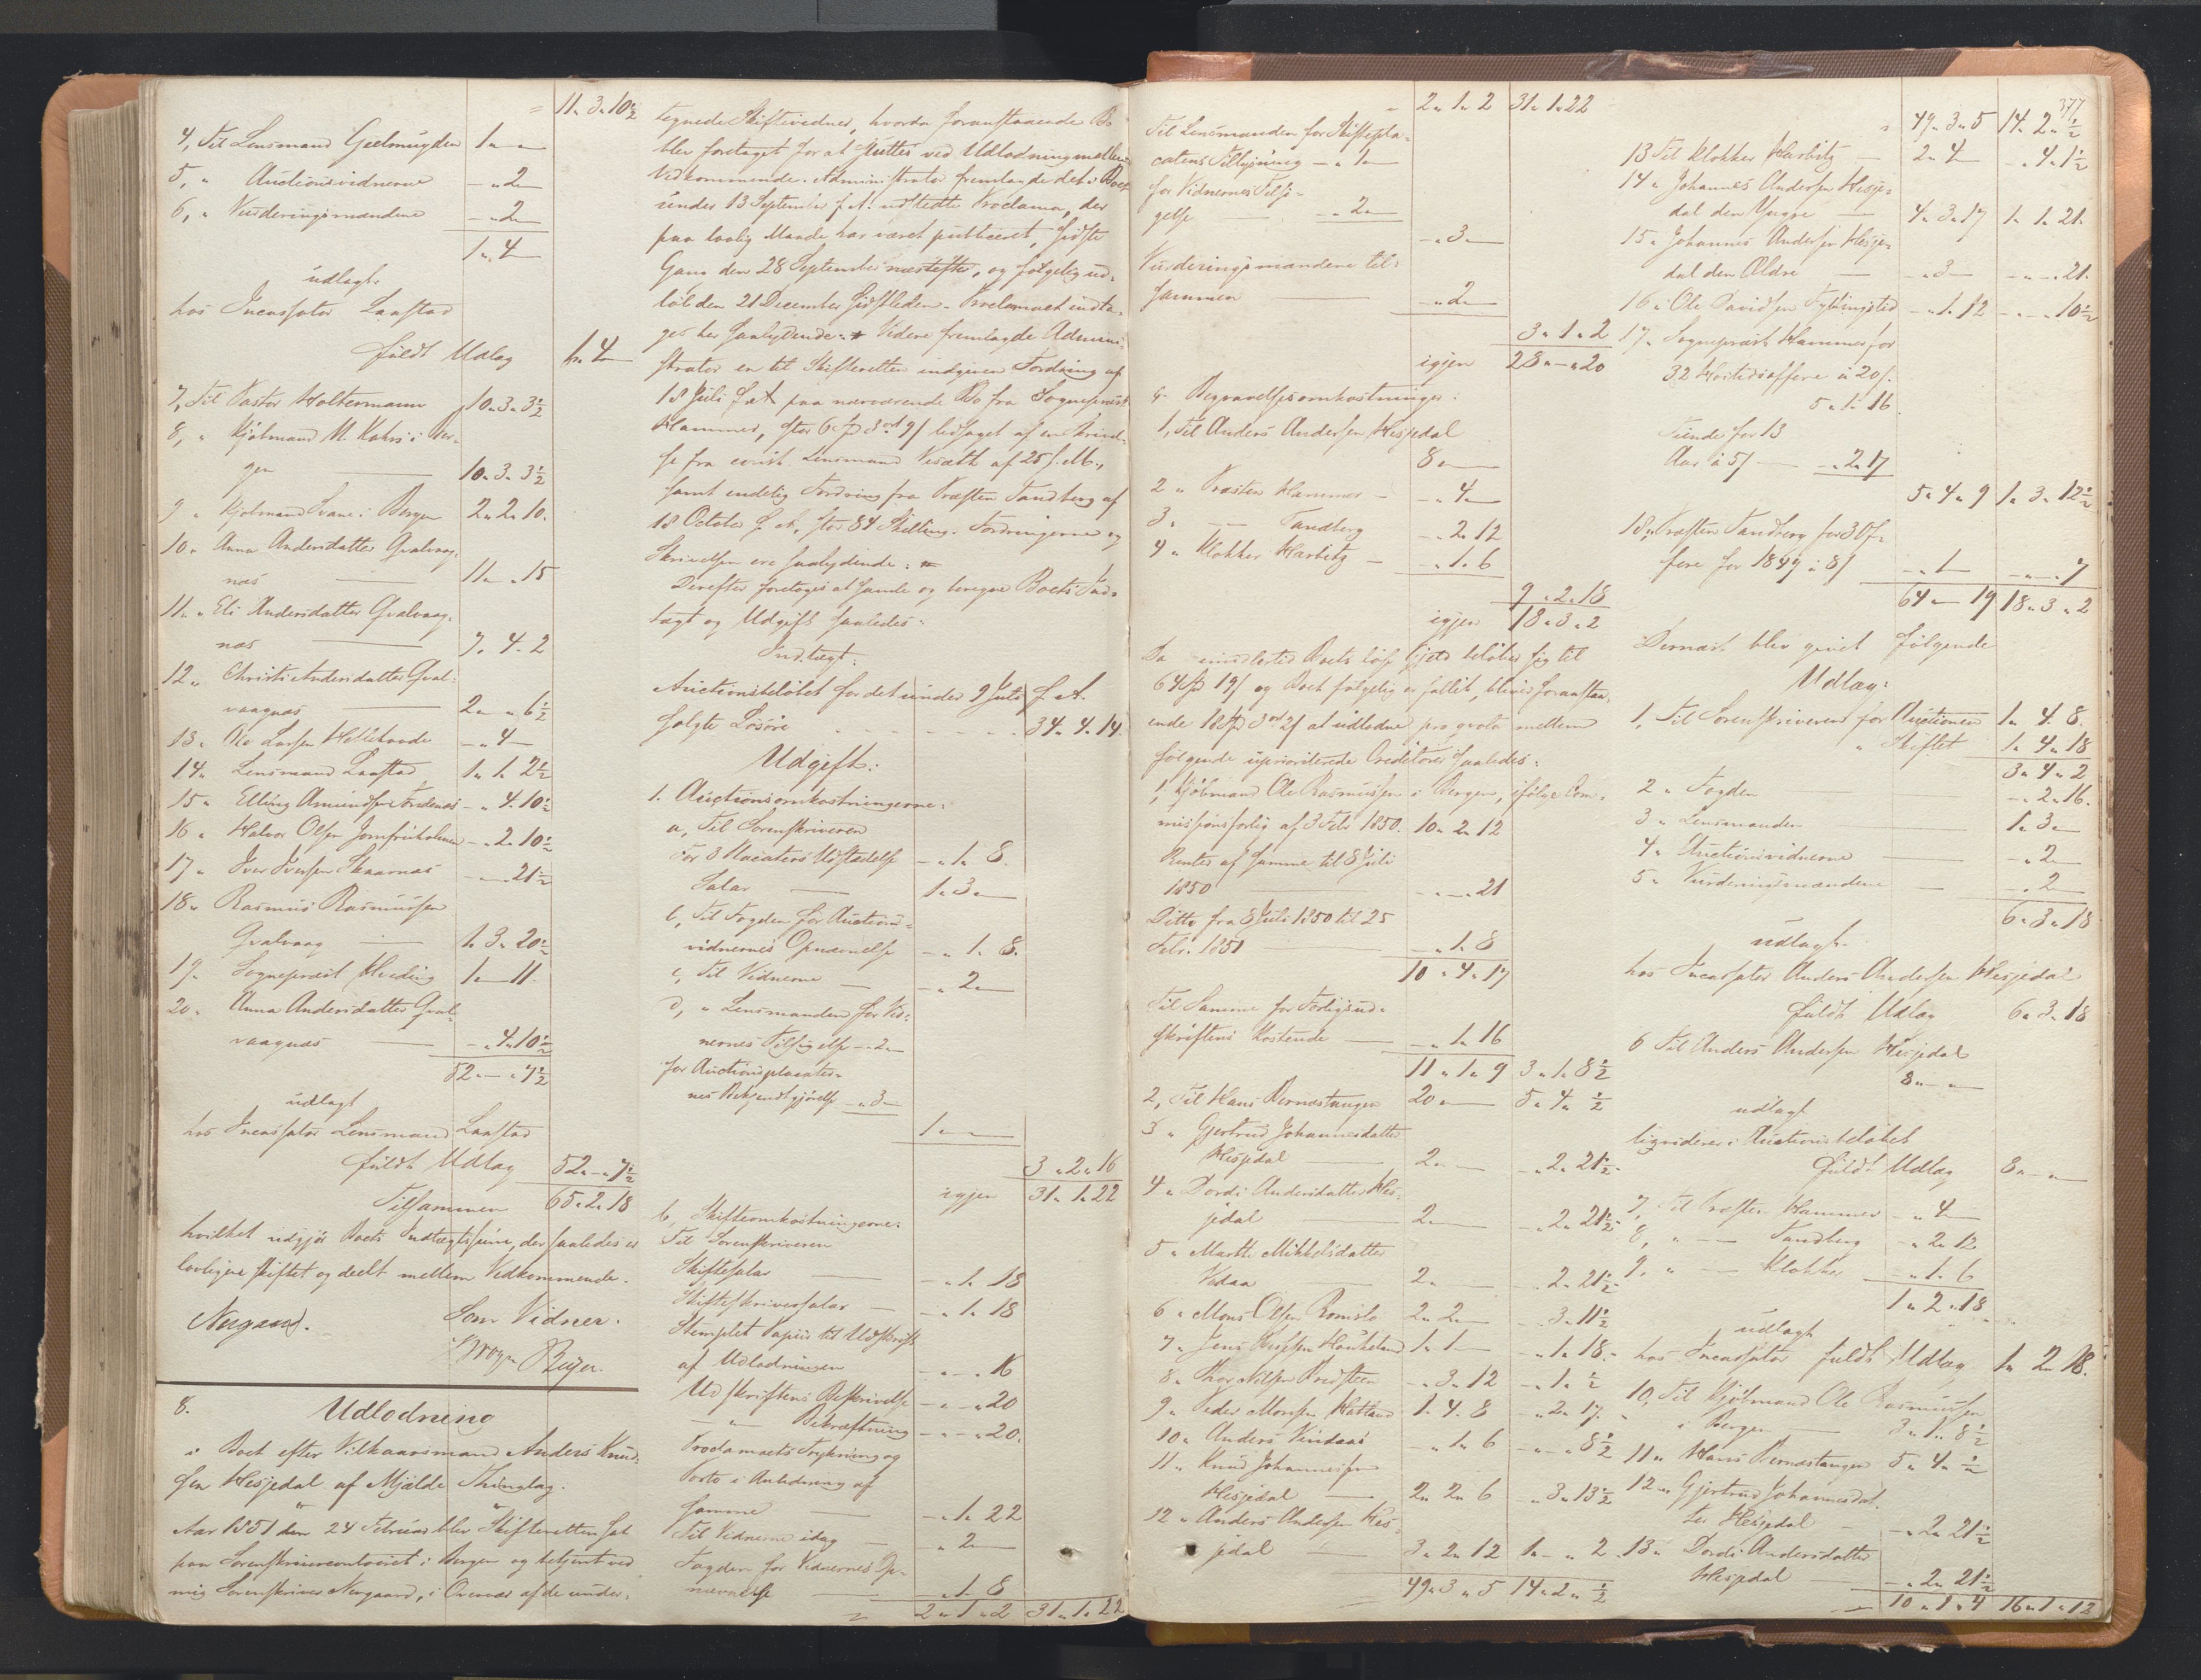 = 11. 3. 10½
4, Til Lensmand Gjelmuyden 1 „ „
5, „ Auctionsvidnerne – „ 2 „
6, „ Vurderingsmændene – „ 2 „
1 „ 4
udlagt
hos Incassator Laastad
fuldt Udlæg 1 „ 4
7, Til Pastor Holtermann 10. 3. 3½
8, „ Kjøbmand M. Kahrs i Ber-
gen 10. 3. 3½
9 „ Kjøbmand Svane i Bergen 2. 2. 10.
10. Anna Andersdatter Qvalvaag-
næs 11 „ „ 15
11. „ Eli Andersdatter Qvalvaag-
næs 7. 4. 2
12 „ Christi Andersdatter Qval-
vaagnæs 2 „ „ 6½
13. Ole Larsen – „ 4
14 „ Lensmand Laastad 1. 1. 2½
15 „ Elling Amundsen – „ 4. 10½
16 „ Halvor Olsen Jomfruholmen – „ 2. 10½
17 „ Iver Iversen – „ – „ 21½
18 „ Rasmus Rasmussen
Qvalvaag 1. 3. 20½
19 „ Sognepræst 1 „ – 11.
20 „ Anna Andersdatter Qval-
vaagnæs – „ 4. 10½
52 „ – „ 7½
udlagt
hos Incassator Lensmand Laastad
fuldt Udlæg 52 „ – „ 7½
Tilsammen 65. 2. 18
hvilket udgjør Boets Indtægtssum, der saaledes er
lovligen skiftet og deelt mellem Vedkommende.
Neergaard. Som Vidner.
Beyer.
8. Udlodning
i Boet efter Vilkaarsmand Anders Knud-
sen Hesjedal af Mjelde Thinglag.
Aar 1851 den 24 Februar blev Skifteretten sat
paa Sorenskrivercontoiret i Bergen og betjent ved
mig Sorenskriver Neergaard, i Overvær af de under-
tegnede Skiftevidner, hvorda foranstaaende Bo
blev foretaget for at sluttes ved Udlodning mellem
Vedkommende. Administrator fremlagde det i Boet
under 13 September f. A. udstedte Proclama, der
paa lovlig Maade har været publiceret, sidste
Gang den 28 September næstefter, og følgelig ud-
løb den 21 December sidstleden. Proclamaet indta-
ges her saalydende: Videre fremlagde Admini-
strator en til Skifteretten indgiven Fordring af
18 Juli f. A. paa nærværende Bo fra Sognepræst
Hammer, stor 6 Spd 3 ort 9 s ledsaget af en Skrivel-
se fra const. Lensmand af 25 s. M.,
samt endelig Fordring fra Præsten Tandberg af
18 October f. A., stor 84 Skilling. Fordringerne og
Skrivelsen ere saalydende:
Derefter foretoges at samle og beregne Boets Ind-
tægt og Udgift saaledes:
Indtægt:
Auctionsbeløbet for det under 9 Juli f. A.
solgte Løsøre 34. 4. 14.
Udgift:
1. Auctionsomkostningerne:
a, Til Sorenskriveren
for 3 Placaters Udstædelse – „ 1. 8.
Salær 1. 3 „
b, Til Fogden for Auctions-
vidnernes Opnævnelse – „ 1. 8.
c, Til Vidnerne – „ 2 „
d, „ Lensmanden for Vid-
nernes Tilsigelse – „ 2 „
for Auctionsplacater-
nes Bekjendtgjørelse – „ 3 „
1 „ – „
3 „ 2 „ 16
igjen 31 „ 1. 22
b, Skifteomkostningerne:
Til Sorenskriveren
Skiftesalær – „ 1. 18
Skifteskriversalær – „ 1. 18
Stemplet Papiir til Udskrift
af Udlodningen – „ – „ 16
Udskriftens Beskrivelse – „ – „ 20
– „ – Bekræftning – „ – „ 20.
Proclamaets Trykning og
Porto i Anledning af
samme – „ 1. 22
Til Vidnerne idag – „ 2 „
Fogden for Vidnernes Op-
nævnelse „ 1. 8
2 „ 1 „ 2 31 „ 1. 22
2 „ 1. 2 31 „ 1. 22
Til Lensmanden for Skiftepla-
catens Tillysning – „ 1 „
for Vidnernes Tilsi-
gelse – „ 2 „
– „ 3 „
Vurderingsmændene til-
sammen – „ 2 „
3 „ 1 „ 2
igjen 28 „ – „ 20
c. Begravelsesomkostninger:
1, Til Anders Andersen Hesjedal
8 „
2 „ Præsten Hammer – „ 4 „
3. – – Tandberg – „ 2. 12
4 „ Klokker Harbitz – „ 1. 6
9 „ 2 „ 18
igjen 18 „ 3 „ 2
Da imidlertid Boets løse Gjæld beløber sig til
64 Spd 19 s og Boet følgelig er fallit, bliver foranstaa-
ende 18 Spd 3 ort 2 s at udlodne pro qvota mellem
følgende uprioriterede Creditorer saaledes:
1, Kjøbmand Ole Rasmussen i Bergen, ifølge Com-
missionsforlig af 3 Febr 1850. 10 „ 2 „ 12
Renter af samme til 8 Juli
1850 – „ – „ 21
Ditto fra 8 Juli 1850 til 25
Febr. 1851 – „ 1. 8
10 „ 4 „ 17
Til Samme for Forligsud-
skriftens Kostende – „ 1 „ 16
11 „ 1 „ 9 3 „ 1. 8½
2, Til Hans Bernæstangen 20 „ – 5 „ 4 „ ½
3 „ Gjertrud Johannesdatter
Hesjedal 2 „ – – „ 2 „ 21½
4 „ Dordi Andersdatter Hes-
jedal 2 „ – – „ 2 „ 21½
5 „ Marthe Mikkelsdatter
Vedaa 2 „ – – „ 2 „ 21½
6 „ Mons Olsen Romslo 2 „ 2 „ – „ 3 „ 11½
7 „ Jens Haukeland 1. 1 – – „ 1 „ 18.
8 „ – „ 3 „ 12 – „ 1 „ ½
9 „ Peder Monsen Hatland 1. 4. 8 – „ 2 „ 17.
10 „ Anders – „ 1 „ 6 – „ – „ 8½
11 „ Knud Johannessen
Hesjedal 2 „ 2 „ 6 – „ 3 „ 13½
12 „ Anders Andersen Hes-
jedal 3 „ 2 „ 12 1 „ – „ 2
49 „ 3 „ 5 14 „ 2 „ ½
377
49 „ 3 „ 5 14. 2 „ ½
13 Til Klokker Harbitz 2 „ 4 – – „ 4 „ 1½
14 „ Johannes Andersen Hesje-
dal den Yngre 4 „ 3 „ 17 1 „ 1. 21.
15 „ Johannes Andersen Hesje-
dal den Ældre – „ 3 – – „ – „ 21.
16 „ Ole Davidsen – „ 1. 12 – „ – „ 10½
17 „ Sognepræst Hammer for
32 Høitidsoffere à 20 s.
5 „ 1 „ 16
Tiende for 13
Aar à 5 s – „ 2 „ 17
5 „ 4 „ 9 1 „ 3. 12½
18 „ Præsten Tandberg for 3 Of-
fere for 1849 à 8 s – „ 1 – – „ – „ 7
64 „ – 19 18 „ 3 „ 2
Dernæst blev givet følgende
Udlæg:
1, Til Sorenskriveren for Auctionen 1 „ 4. 8.
„ Skiftet 1 „ 4 „ 18
3 „ 4 „ 2
2 „ Fogden – „ 2 „ 16.
3 „ Lensmanden 1 „ 3 „
4 „ Auctionsvidnerne – „ 2 „
5 „ Vurderingsmændene – „ 2
6 „ 3 „ 18
udlagt
hos Incassator Anders Andersen Hesjedal
fuldt Udlæg 6 „ 3 „ 18
6 Til Anders Andersen Hesjedal
8 „ – „
udlagt
liqviderer i Auctionsbeløbet
fuldt Udlæg 8 „ – „
7, Til Præsten Hammer – „ 4 –
8, „ – Tandberg – „ 2 „ 12
9, „ – Klokker – „ 1 „ 6
1 „ 2 „ 18
udlagt
hos Incassator fuldt Udlæg 1 „ 2 „ 18.
10, Til Kjøbmand Ole Rasmussen
i Bergen 3 „ 1. 8½
11 „ Hans Bernæstangen 5 „ 4 „ ½
12 „ Gjertrud Johannesdat-
ter Hesjedal – „ 2 „ 21½
13 „ Dordi Andersdatter
Hesjedal – „ 2 „ 21½
10 „ 1 „ 4 16 „ 1 „ 12